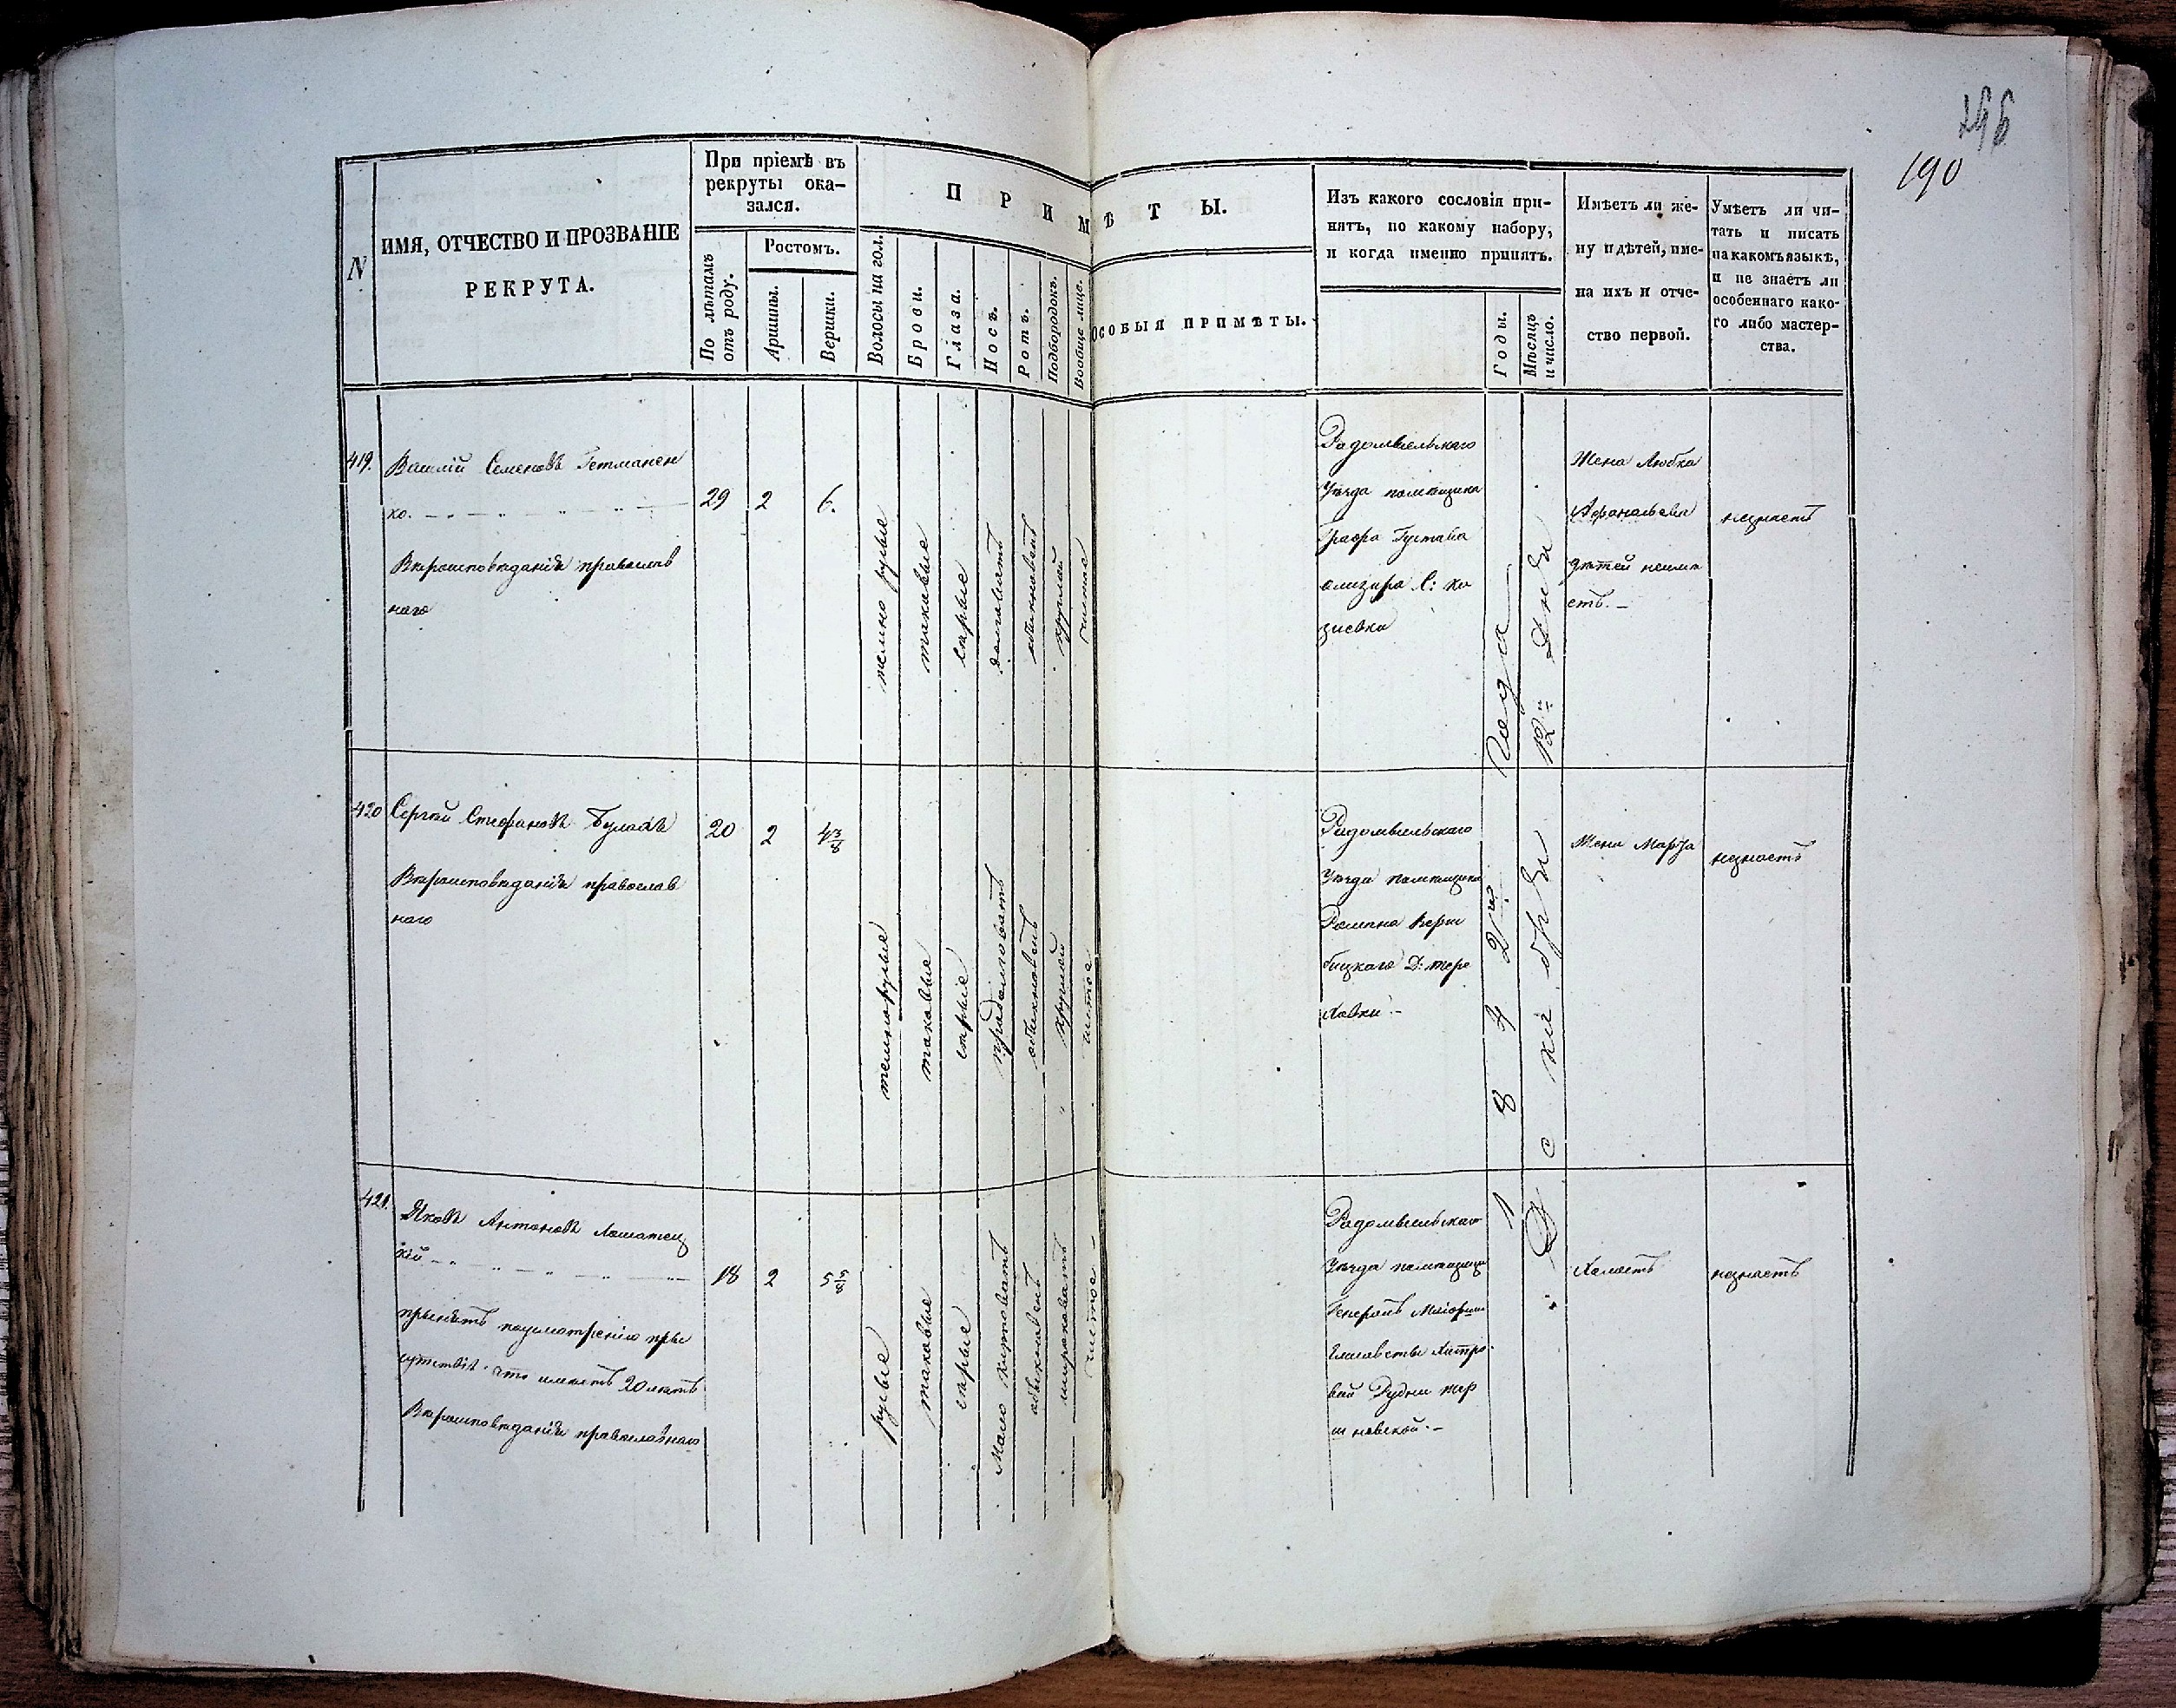 196
190
N
ИМЯ, ОТЧЕСТВО И ПРОЗВАНІЕ
РЕКРУТА.
При пріемѣ въ
рекруты ока-
зался.
По лѣтамъ
отъ роду.
Ростомъ.
Аршины.
Вершки.
ПРИМѢТЫ.
Волосы на гол.
Брови.
Глаза.
Носъ.
Ротъ.
Подбородокъ.
Вообще лице.
ОСОБЫЯ ПРИМѢТЫ.
Изъ какого сословія при-
нятъ, по какому набору,
и когда именно принятъ.
Годы.
Мѣсяцъ
и число.
Имѣетъ ли же-
ну и дѣтей, име-
на ихъ и отче-
ство первой.
Умѣетъ ли чи-
тать и писать
на какомъ языкѣ,
и не знаетъ ли
особеннаго како-
го либо мастер-
ства.
419.
Василій Семеновъ Гетманен
ко.
Вероисповеданія православ
наго
29
2
6.
темно русые
таковые
серые
долговатъ
обыкновенъ
круглый
чистое
Радомысльскаго
Уезда помещика
Графа Густава
Олизара С:
Жена Любка
Афанасьева
детей неиме
етъ. –
незнаетъ
420
Сергей Стефановъ Булахъ
Вероисповеданія православ
наго
20
2
4 3/8
темнорусые
таковые
серые
продолговатъ
обыкновенъ
круглый
чистое
Радомысльскаго
Уезда помещика
Романа
Д: тере
ховки –
Жена Марфа
незнаетъ
1842го Года
Декабря 12го Дня
421.
Яковъ Антоновъ
кій
прынятъ поусмотренію при
сутствія что имеетъ 20 летъ
Вероисповеданія православнаго
18
2
5 5/8
русые
таковые
серые
мало
обыкновенъ
широковатъ
чистое
Радомысльскаго
Уезда помещицы
Генералъ Маіорши
Елисаветы Хитро-
вой Рудни
Холостъ
незнаетъ